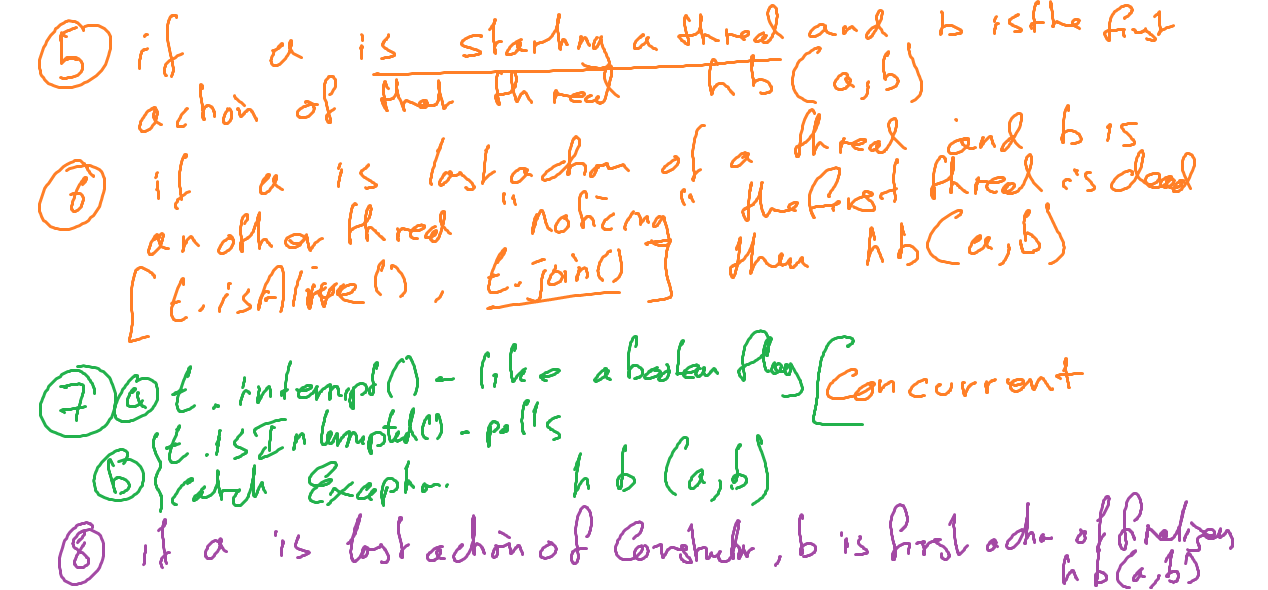 ⑤ if a is starting a thread and b is the first
action of that thread hb(a,b)
⑥ if a is last action of a thread and b is
another thread "noticing" the first thread is dead
[t.isAlive(), t.join()] then hb(a,b)
⑦ ⓐ t.interrupt() - like a boolean flag [Concurrent
ⓑ { t.isInterrupted() - polls
catch Exception. hb(a,b)
⑧ if a is last action of Constructor, b is first action of finalizer
hb(a,b)